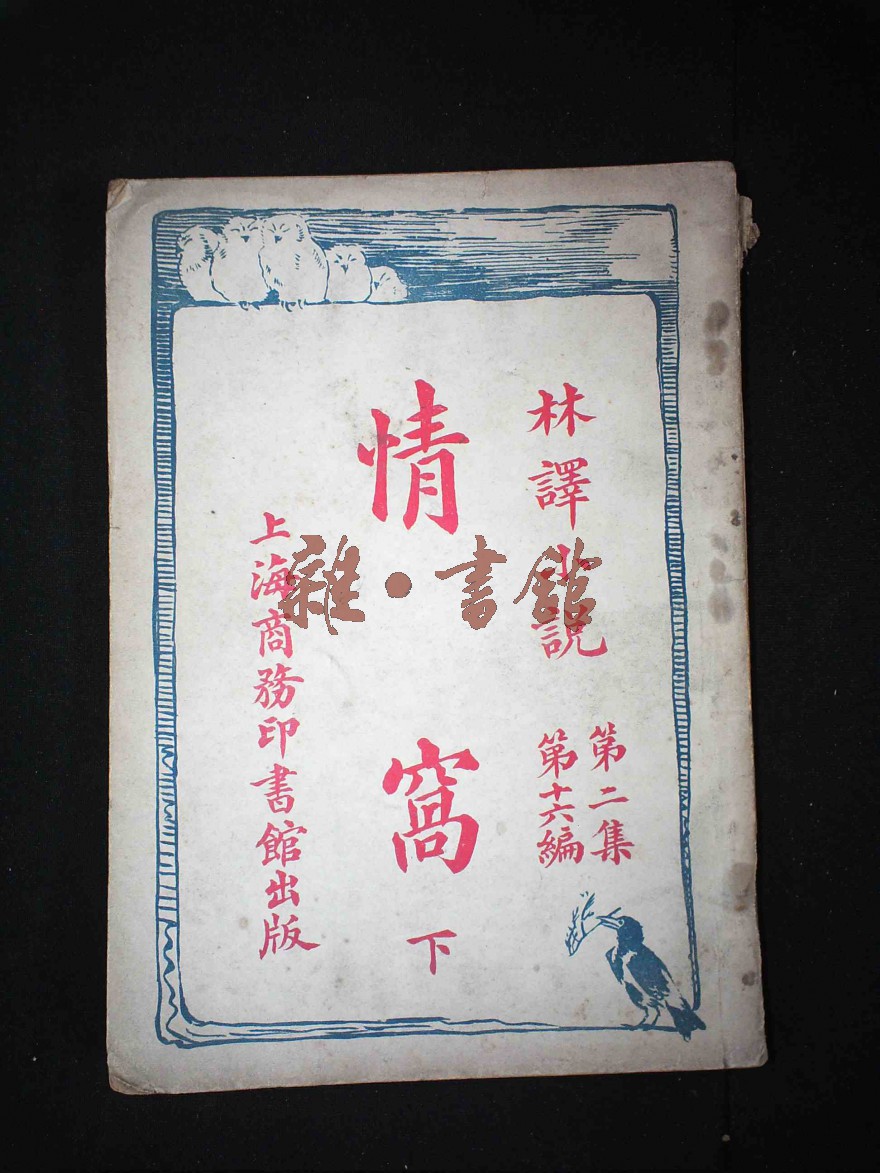 林譯小說
第二集
第十六編
情窩
下
上海商務印書館出版
雜·書館